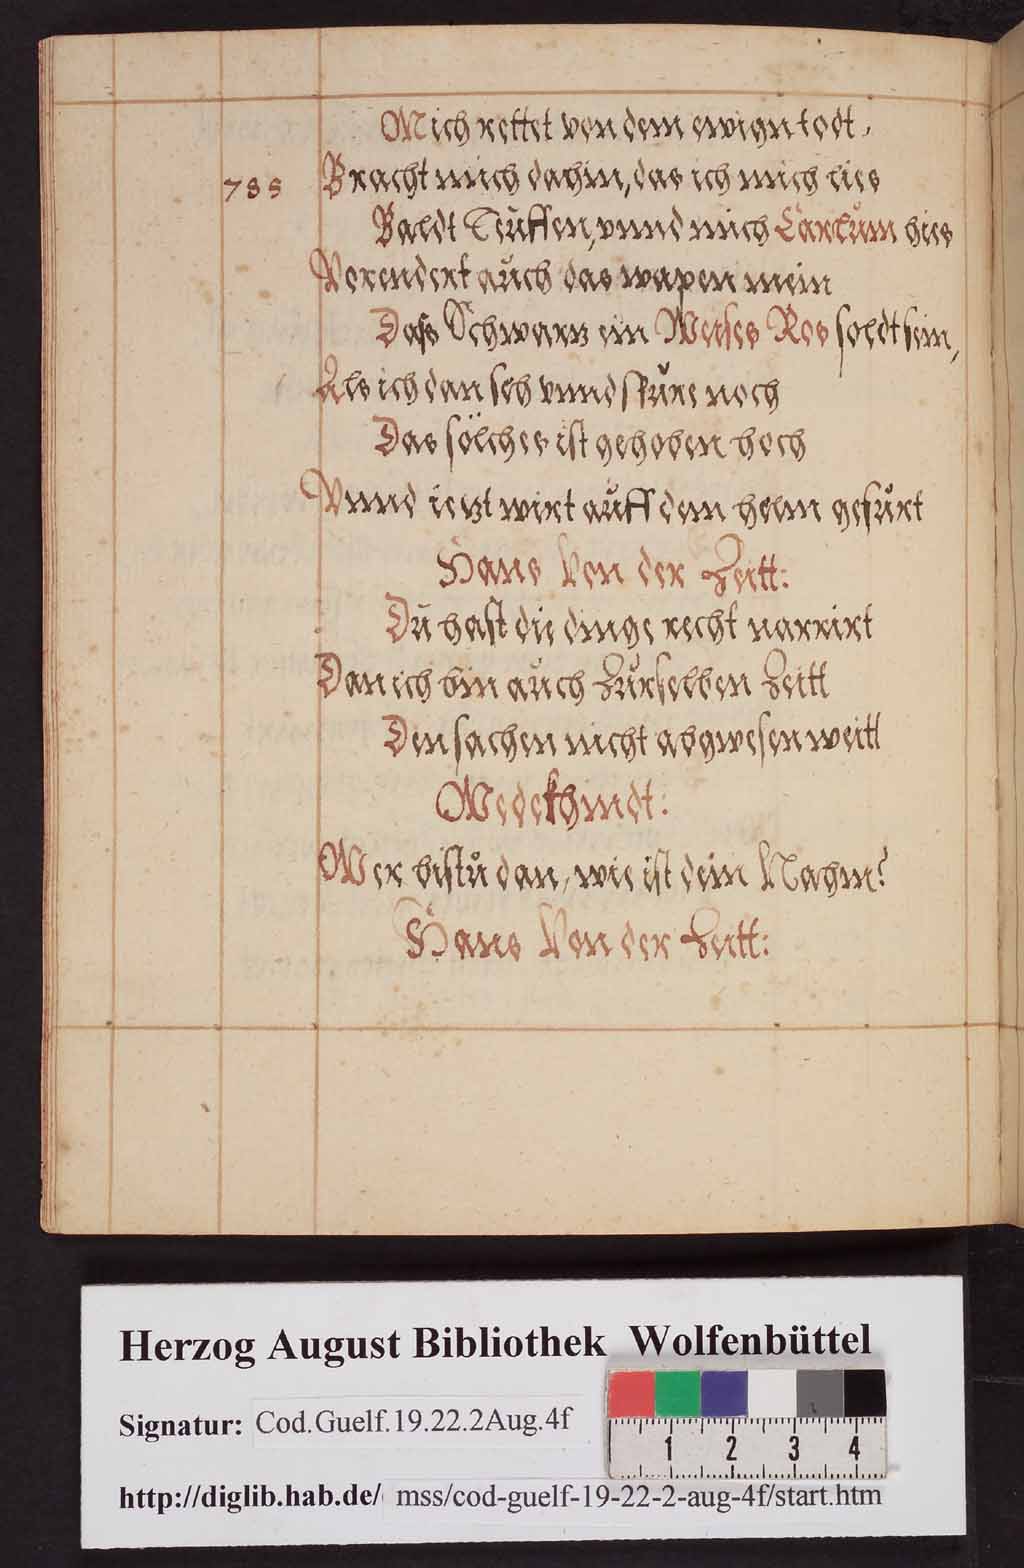 Mich rettet von dem ewign todt,
785 Bracht mich dahin, das ich mich lies
Baldt Teuffen, vnnd mich Carlum hies
Verendert auch das wapen mein
Dass Schwartz ein Weises Ros soldt sein,
Als ich dan seh vnnd spure noch
Das sölches ist gehoben hoch
Vnnd ietzt wirt auff dem helm gefurt
Hans Von der Zeitt:
Du hast die dinge recht narrirt
Dan ich bin auch Zurselben Zeitt
Den sachen nicht abgwesen weitt
Wedekhindt:
Wer bistu dan, wie ist dein Nahm?
Hans Von der Zeitt:
Herzog August Bibliothek Wolfenbüttel
Signatur: Cod.Guelf.19.22.2Aug.4f
1 2 3 4
http://diglib.hab.de/ mss/cod-guelf-19-22-2-aug-4f/start.htm